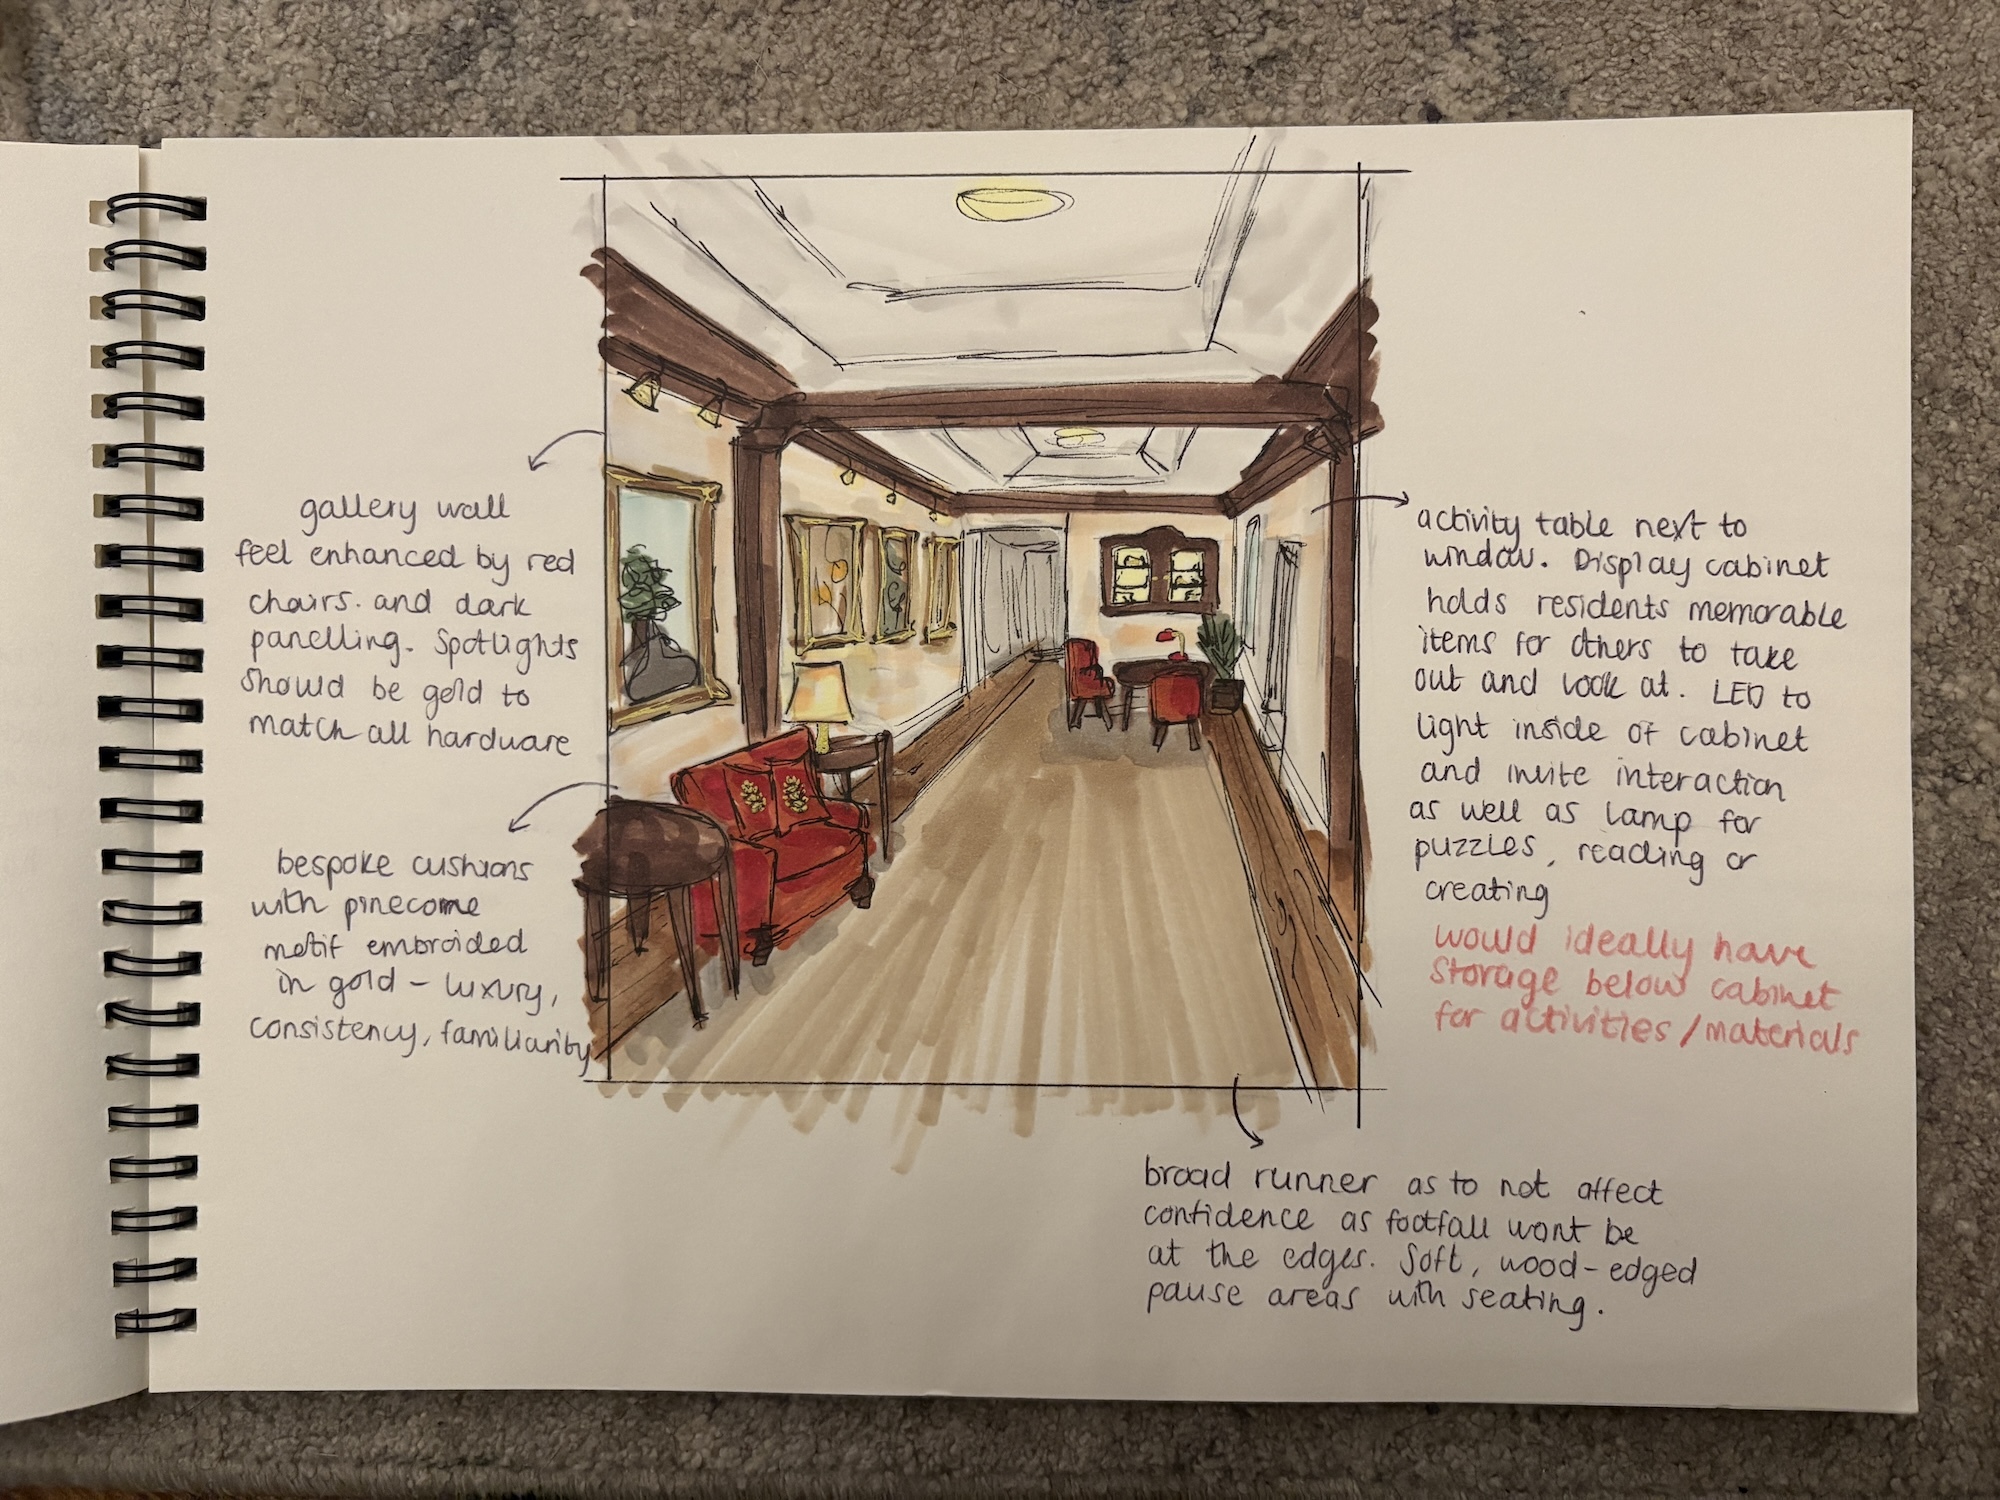 gallery wall
feel enhanced by red
chairs. and dark
panelling. Spotlights
should be gold to
match all hardware
bespoke cushions
with pinecome
motif embroided
in gold - luxury,
consistency, familiarity
activity table next to
window. Display cabinet
holds residents memorable
items for others to take
out and look at. LED to
light inside of cabinet
and invite interaction
as well as lamp for
puzzles, reading or
creating
would ideally have
storage below cabinet
for activities/materials
broad runner as to not affect
confidence as footfall wont be
at the edges. Soft, wood-edged
pause areas with seating.